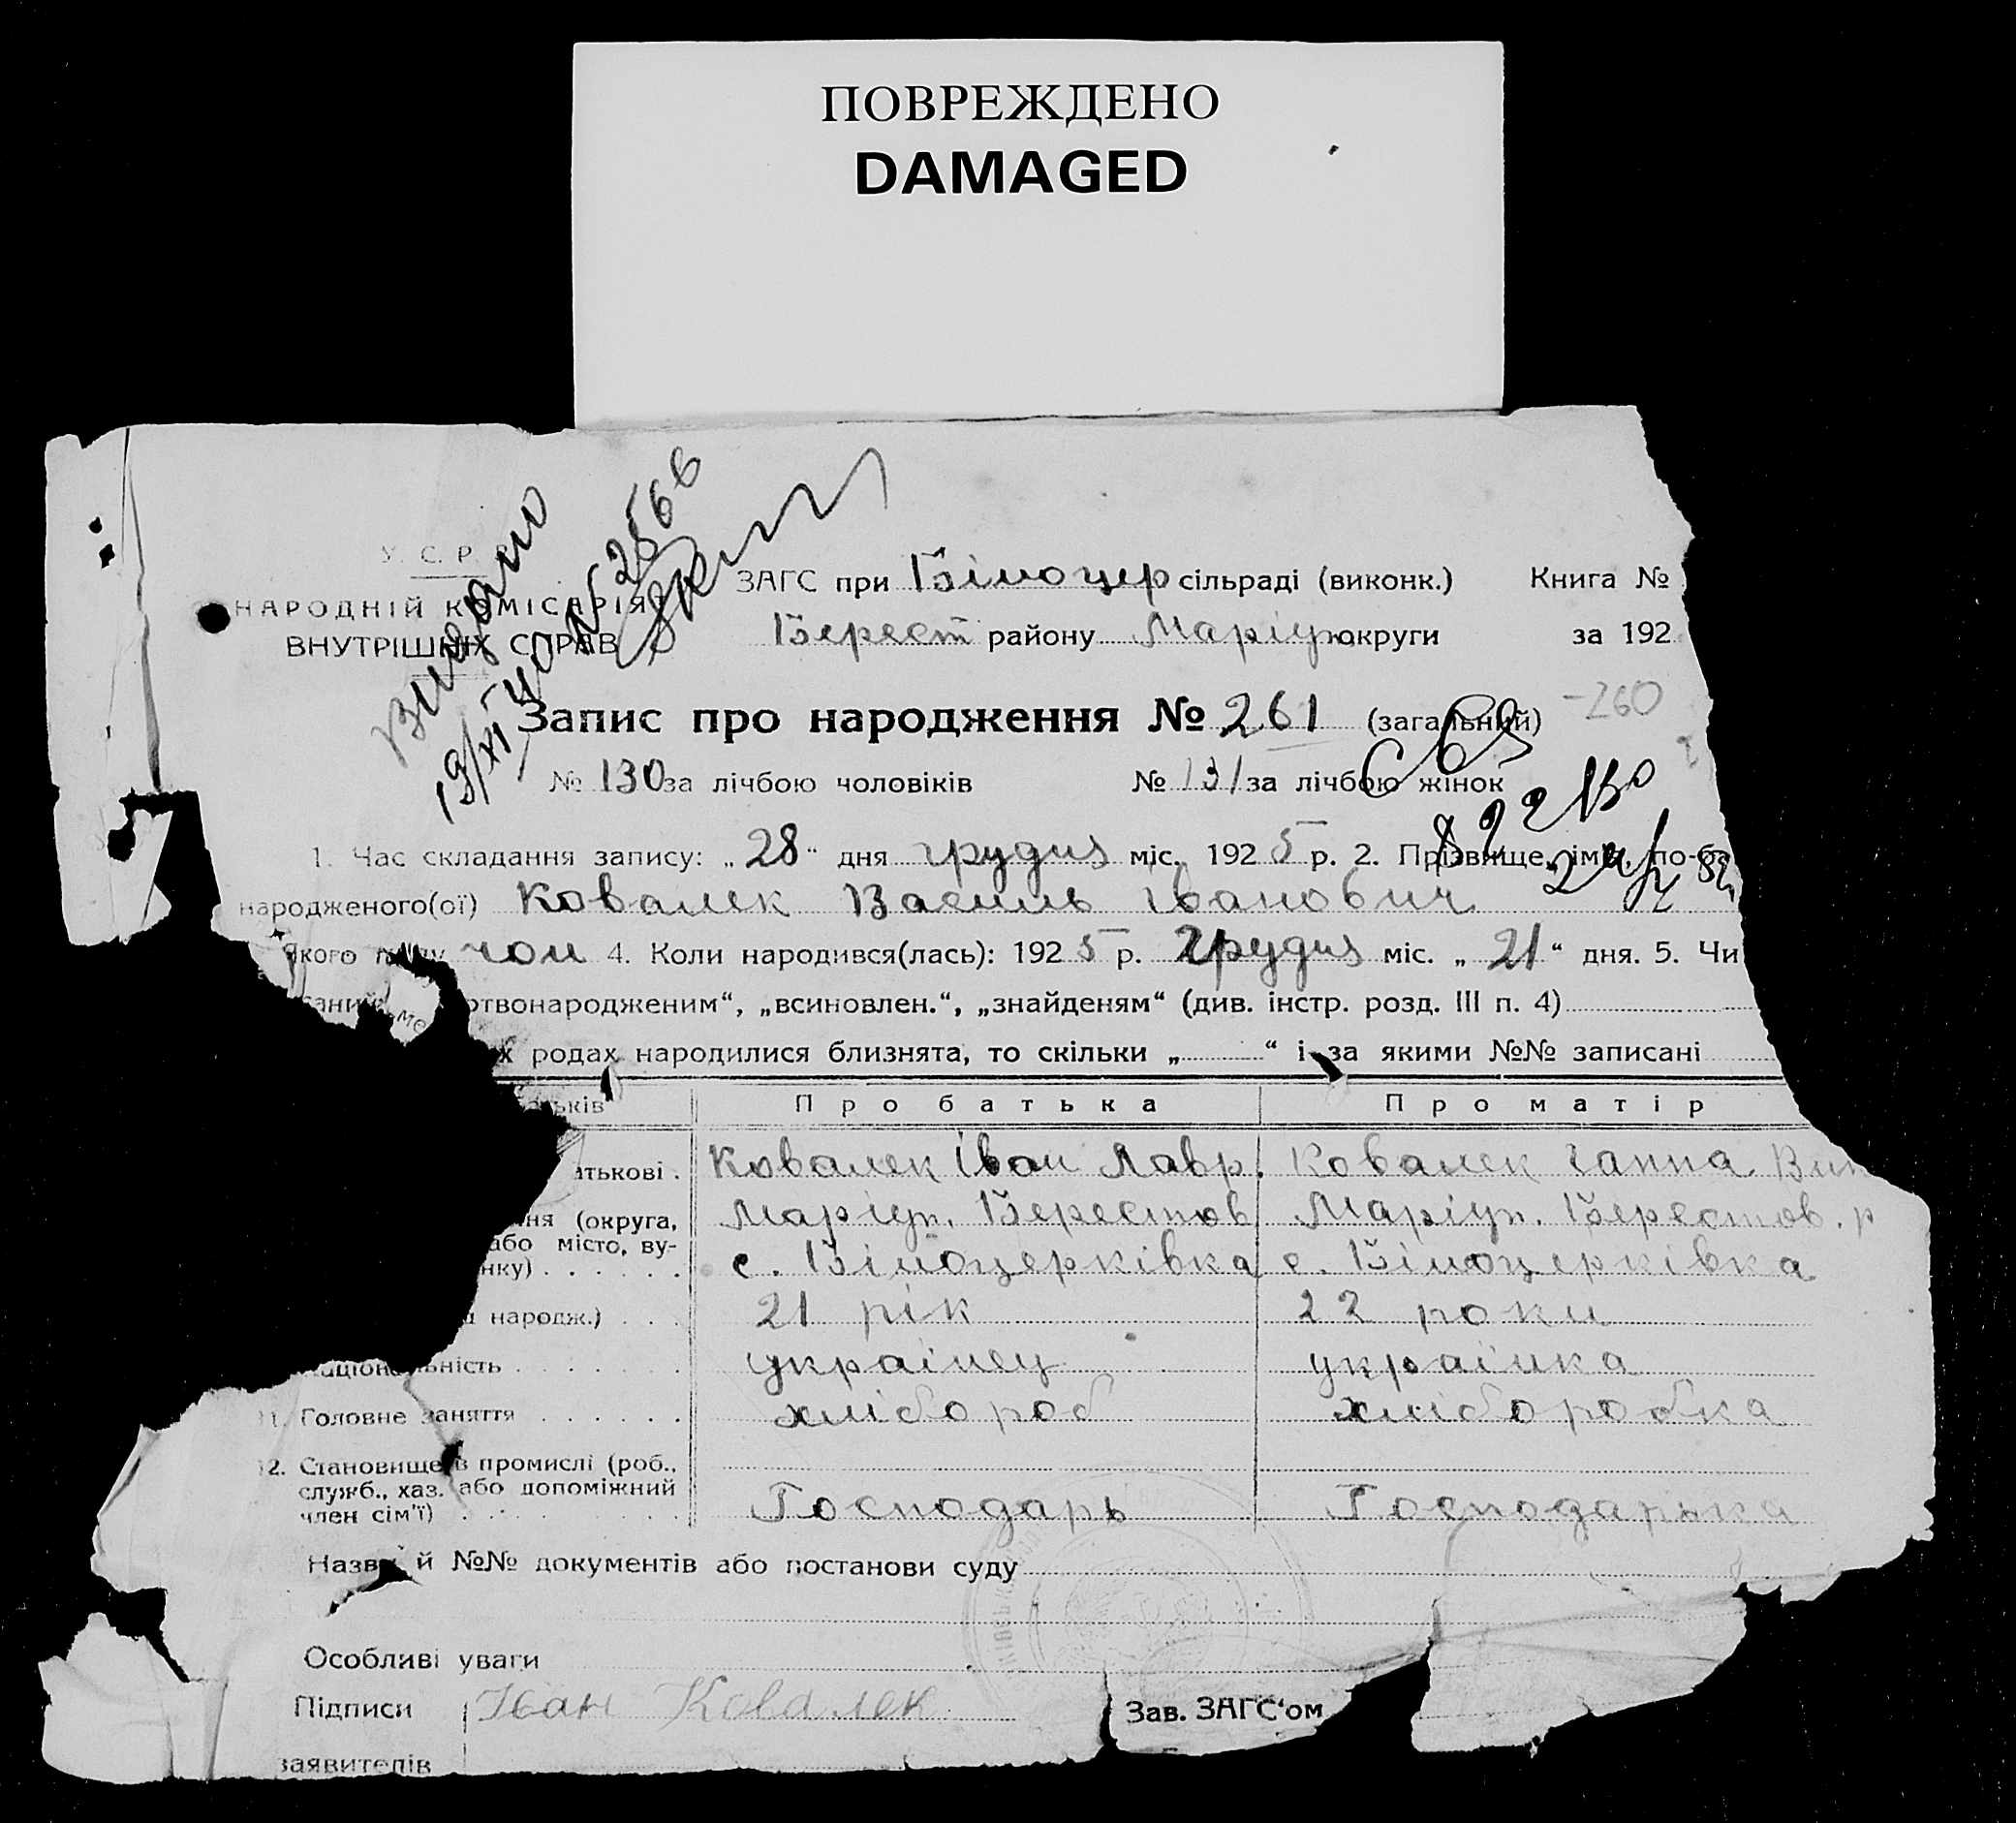 ПОВРЕЖДЕНО
DAMAGED
У. С. Р. Р.
НАРОДНІЙ КОМІСАРІЯ
ВНУТРІШНІХ СПРАВ
Видано
ЗАГС при Білоцер сільраді (виконк.) Книга №
Берест район­у Маріуп округи за 192
Запис про народження № 261 (загальний) -260
№ 130 за лічбою чоловіків № 131 за лічбою жінок
1. Час складання запису: „28“ дня грудня міс. 1925 р. 2. Прізвище, ім'я, по-ба
народженого(ої) Ковалек Василь Іванович
якого полу чол 4. Коли народився(лась): 1925 р. Грудня міс. „21“ дня. 5. Чи
ртвонародженим“, „всиновлен.“, „знайденям“ (див. інстр. розд. III п. 4)
х родах народилися близнята, то скільки „ “ і за якими №№ записані
ьків Про батька Про матір
атькові . Ковалек Іван Лавр. Ковалек Ганна
ня (округа, Маріуп. Берестов Маріуп. Берестов. р
або місто, ву-
нку) . . . . . . с. Білоцерківка с. Білоцерківка
народж.) . . . 21 рік 22 роки
національність . . . . . . . українец українка
11. Головне заняття . . . . . . хлібороб хлібородка
12. Становище в промислі (роб.,
служб., хаз. або допоміжний
член сім'ї) Господарь Господарька
Назви й №№ документів або постанови суду
Особливі уваги
Підписи Іван Ковалек Зав. ЗАГС'ом
заявителів